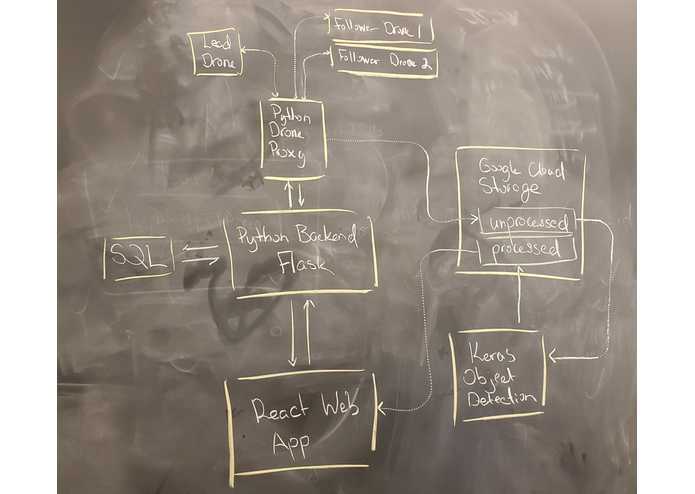 Lead
Drone
Follower Drone 1
Follower Drone 2
Python
Drone
Proxy
Google Cloud
Storage
unprocessed
processed
SQL
Python Backend
Flask
Keras
Object
Detection
React Web
App